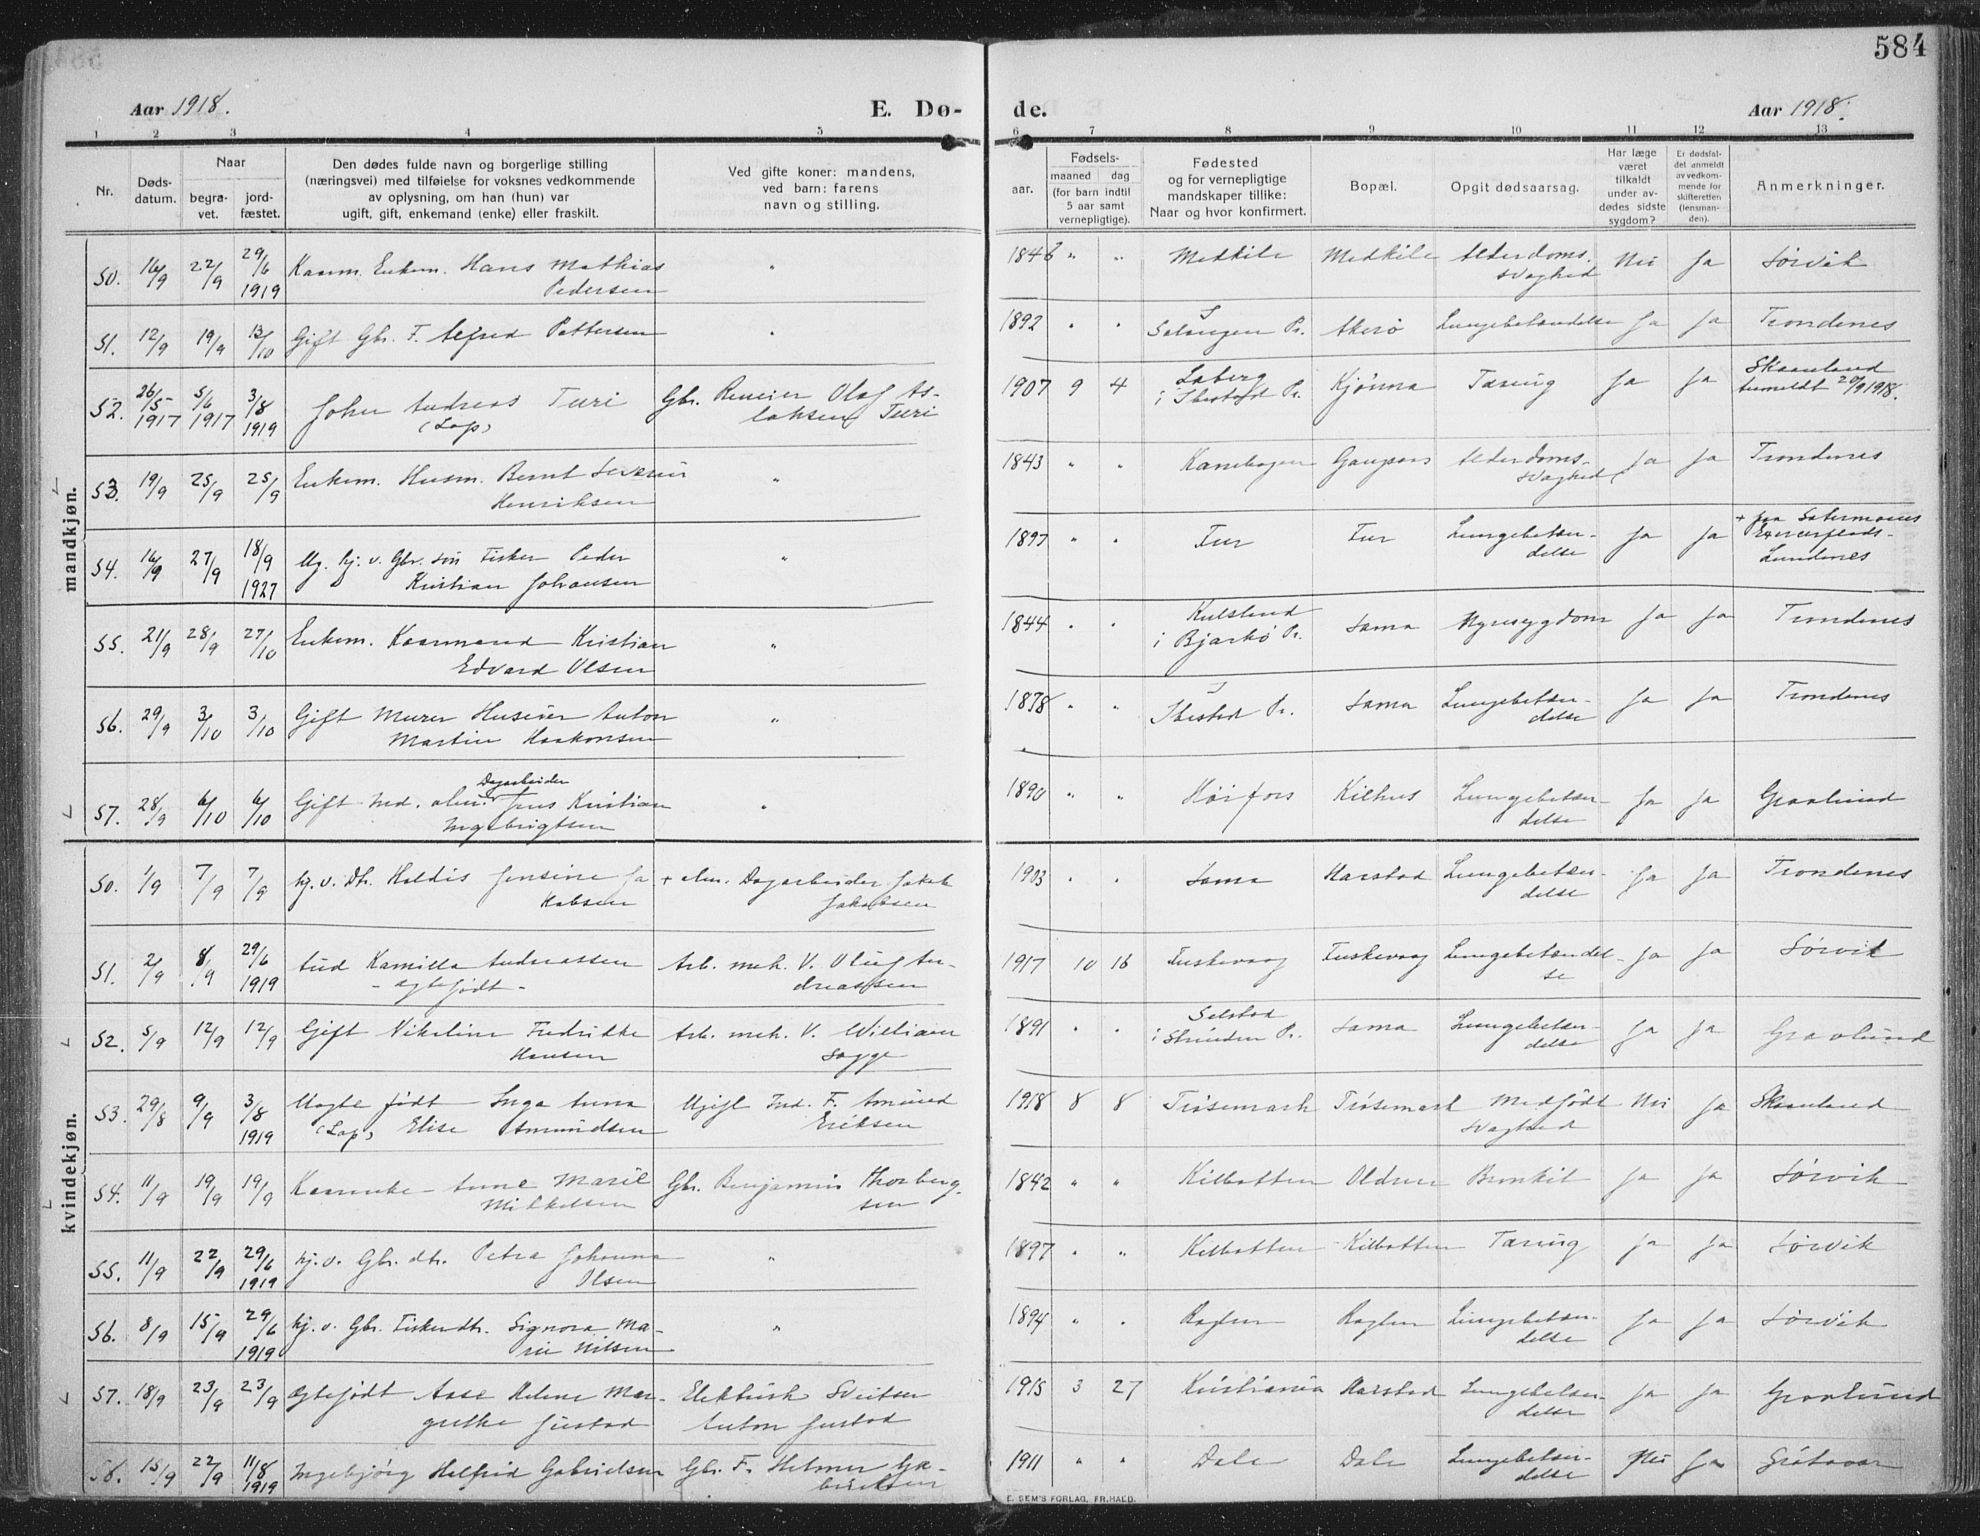 584
Aar 1918.
E. Dø-
de.
Aar 1918.
1 2 3 4 5 6 7 8 9 10 11 12 13
Nr.
Døds-
datum.
Naar
begra-
vet.
jord-
fæstet.
Den dødes fulde navn og borgerlige stilling
(næringsvei) med tilføielse for voksnes vedkommende
av oplysning, om han (hun) var
ugift, gift, enkemand (enke) eller fraskilt.
Ved gifte koner: mandens,
ved barn: farens
navn og stilling.
aar.
Fødsels-
maaned dag
(for barn indtil
5 aar samt
vernepligtige).
Fødested
og for vernepligtige
mandskaper tillike:
Naar og hvor konfirmert.
Bopæl.
Opgit dødsaarsag.
Har læge
været
tilkaldt
under av-
dødes sidste
sygdom?
Er dødsfal-
det anmeldt
av vedkom-
mende for
skifteretten
(lensman-
den).
Anmerkninger.
mandkjøn.
50. 16/9 22/9 29/6 1919 Kaarm. Enkem. Hans Mathias
Pedersen
" 1846 " " Medkile Medkile Alderdoms-
svaghed Nei Ja Sørvik
51. 12/9 19/9 13/10 Gift Gbr. F. Alfred Pettersen " 1892 " " Salangen Pr. Akerø Lungebetændelse Ja Ja Trondenes
52. 26/5 1917 5/6 1917 3/8 1919 John Andreas Turi
(Lap)
Gbr. Reneier Olaf As-
laksen Turi
1907 9 4 Laberg
i Ibestad Pr. Kjønna Tæring Ja Ja Skaanland
Anmeldt 20/9 1918.
53. 19/9 25/9 25/9 Enkem. Husm. Bernt Severin
Henriksen
" 1843 " " Kanebogen Gangsaas Alderdoms-
svaghed Ja Ja Trondenes
54. 16/9 27/9 18/9 1927 Ug. hj. v. Gbr. søn Fisker Peder
Kristian Johansen
" 1897 " " Fur Fur Lungebetæn-
delse Ja Ja + paa Setermoens
Exercerplads -
Lundenes
55. 21/9 28/9 27/10 Enkem. Kaarmand Kristian
Edvard Olsen
" 1844 " " Kulslend
i Bjarkø Pr. Sama Nyresygdom Ja Ja Trondenes
56. 29/9 3/10 3/10 Gift Murer Huseier Anton
Martin Haakonsen
" 1878 " " Ibestad Pr. Sama Lungebetæn-
delse Ja Ja Trondenes
57. 28/9 6/10 6/10 Gift Ind. alm. Dagarbeider Jens Kristian
Ingebrigtsen
" 1890 " " Høifors Kilhus Lungebetæn-
delse Ja Ja Graalund
kvindekjøn.
50. 1/9 7/9 7/9 hj. v. Dtr. Haldis Jensine Ja
kobsen
+ alm. Dagarbeider Jakob
Jakobsen
1903 " " Sama Harstad Lungebetæn-
delse Ja Ja Trondenes
51. 2/9 8/9 29/6 1919 Aud Kamilla Andreassen
- Ægtefødt -
Arb. mek. V. Oluf An-
dreassen
1917 10 16 Fuskevaag Fuskevaag Lungebetændel-
se Ja Ja Sørvik
52. 5/9 12/9 12/9 Gift Nikoline Fredrikke
Hansen
Arb. mek. V. William
Sagge
1891 " " Selstad
i Strinden Pr. Sama Lungebetæn-
delse Ja Ja Graalund
53. 29/8 9/9 3/8 1919 Uægte født Inga Anna
(Lap) Elise Amundsen
Ugift Ind. F. Amund
Eriksen
1918 8 8 Trøsemark Trøsemark Medfødt
svaghed Nei Ja Skaanland
54. 11/9 19/9 19/9 Kaarenke Anne Marie
Mikkelsen
Gbr. Benjamin Thorberg-
sen
1842 " " Kilbotten Oldren Bronkit Ja Ja Sørvik
55. 11/9 22/9 29/6 1919 hj. v. Gbr. dtr. Petra Johanna
Olsen
" 1897 " " Kilbotten Kilbotten Tæring Ja Ja Sørvik
56. 8/9 15/9 29/6 1919 hj. v. Gbr. Fiskerdtr. Signora Ma-
rie Nilsen
" 1894 " " Raglen Raglen Lungebetæn-
delse Ja Ja Sørvik
57. 18/9 23/9 23/9 Ægtefødt Aase Helene Mar-
grethe Justad
Elektrisk Sveitser
Anton Justad
1915 3 27 Kristiania Harstad Lungebetæn-
delse Ja Ja Graalund
58. 15/9 22/9 11/8 1919 Ingebjørg Halfrid Gabrielsen Gbr. F. Helmer Ga-
brielsen
1911 " " Dale Dale Lungebetæn-
delse Nei Ja Grøtavær
E. SEM'S FORLAG, FR.HALD.